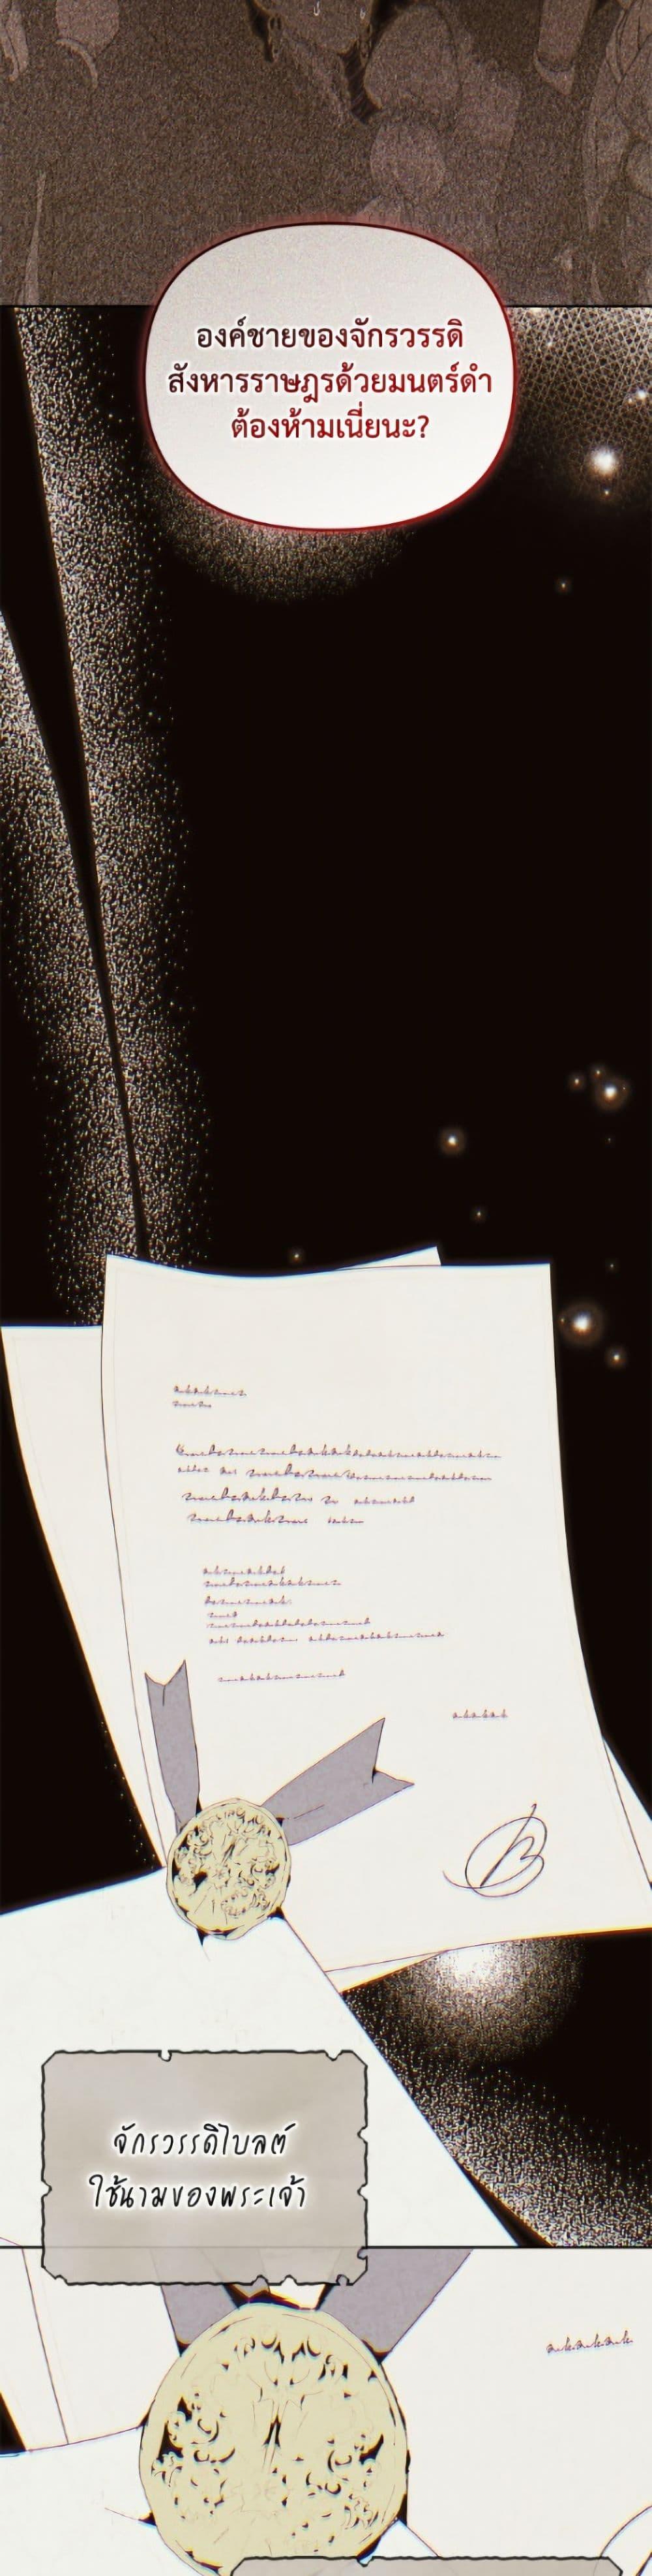 องค์ชายของจักรวรรดิ
สังหารราษฎรด้วยมนตร์ดำ
ต้องห้ามเนี่ยนะ?
จักรวรรดิไบลต์
ใช้นามของพระเจ้า